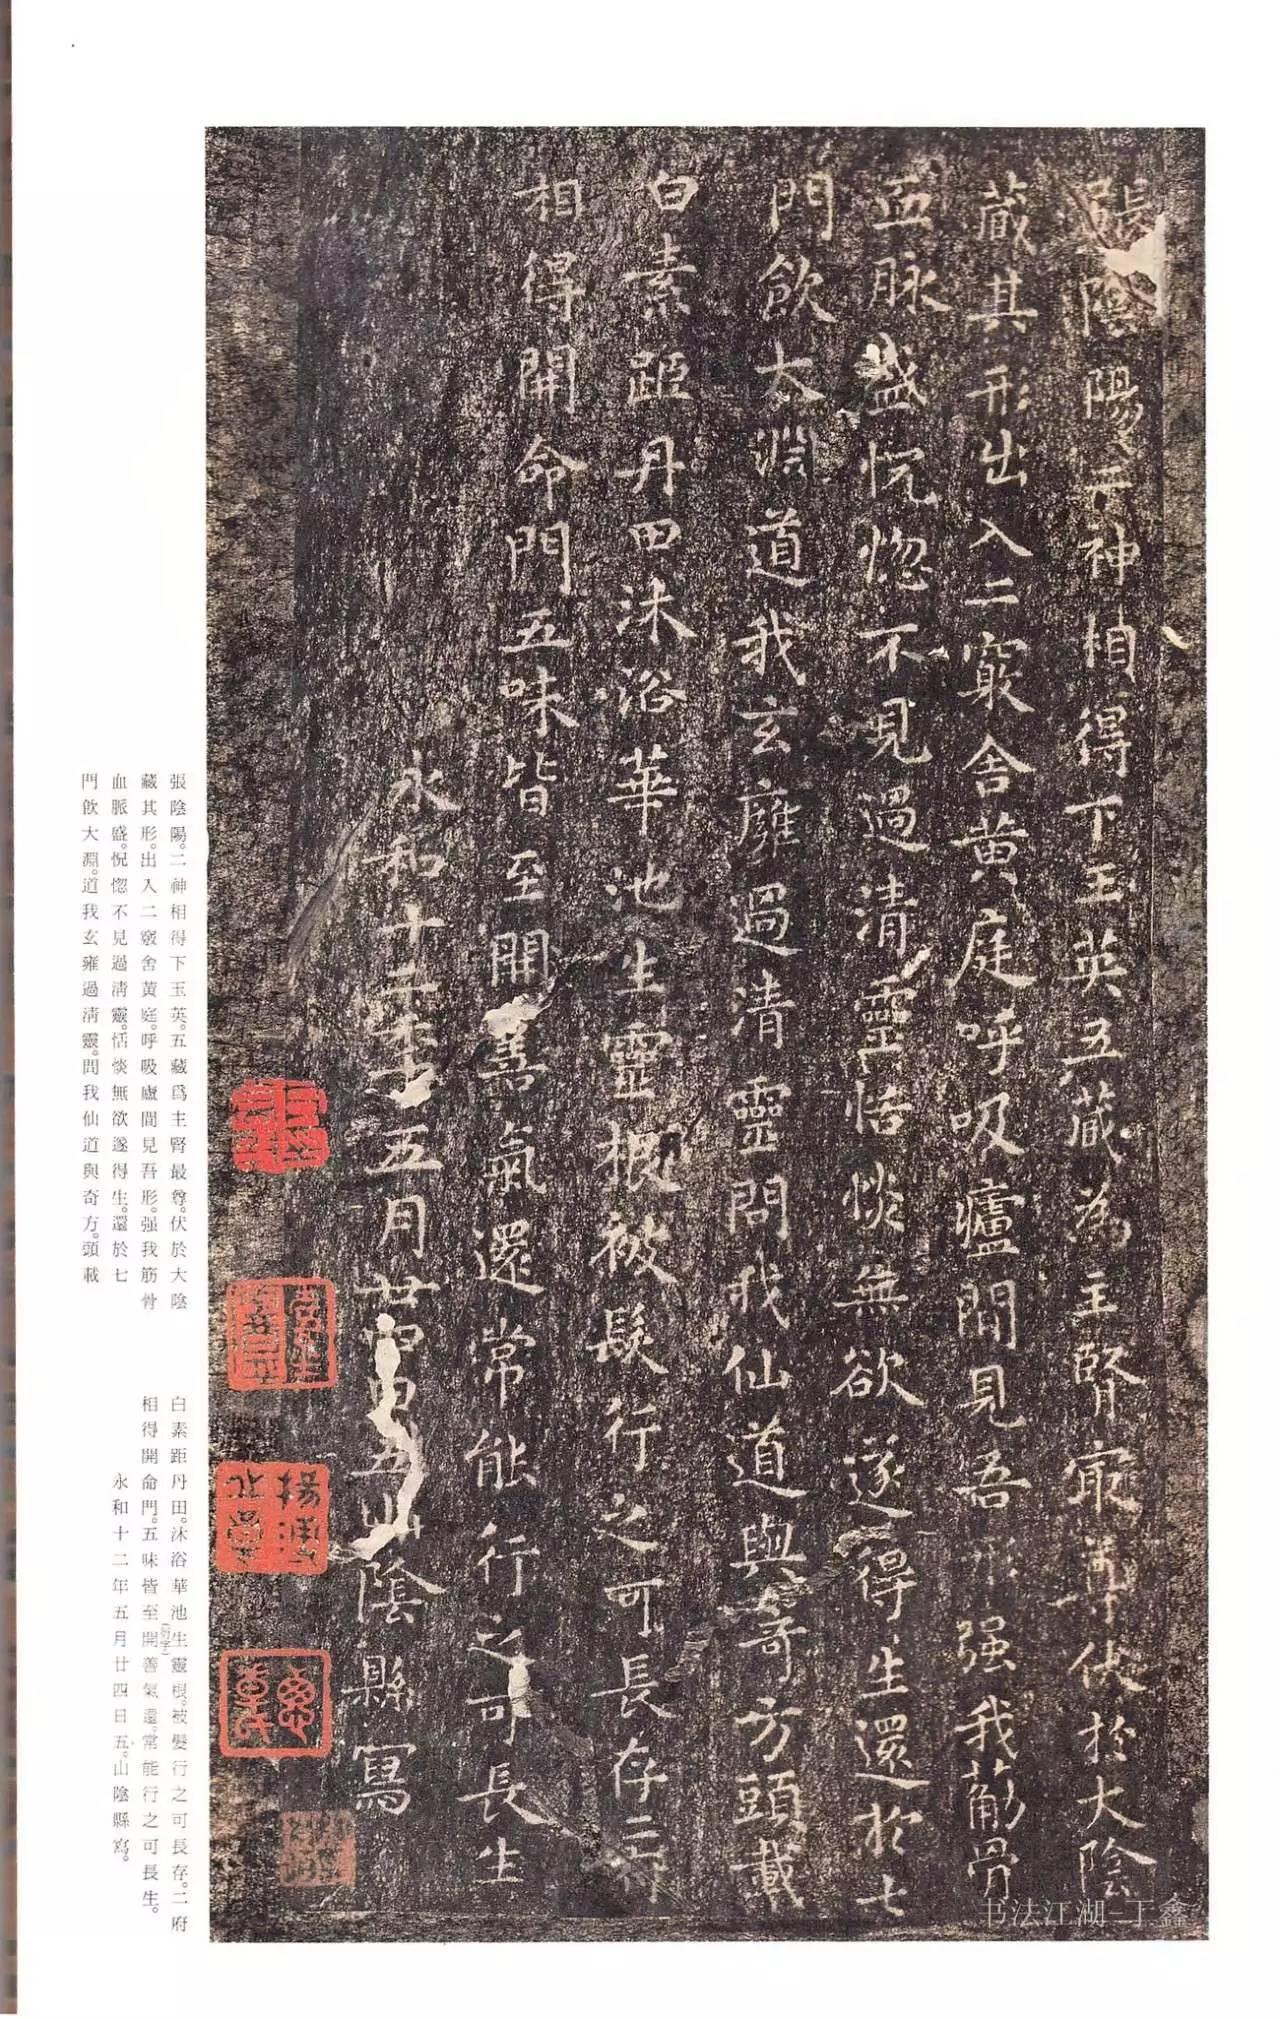 張陰陽二神相得下玉英五藏為主腎最尊伏於大陰
藏其形出入二竅舍黃庭呼吸廬間見吾形强我筋骨
血脉盛怳惚不見過清靈恬惔無欲遂得生還於七
門飲大淵道我玄廱過清靈問我仙道與奇方頭載
白素距丹田沐浴華池生靈根被髮行之可長存二府
相得開命門五味皆至開善氣還常能行之可長生
永和十二年五月廿四日五山陰縣寫
張陰陽。二神相得下玉英。五藏爲主腎最尊。伏於大陰
藏其形。出入二竅舍黃庭。呼吸廬間見吾形。强我筋骨
血脈盛。怳惚不見過淸靈。恬惔無欲遂得生。還於七
門飮大淵。道我玄雍過淸靈。問我仙道與奇方。頭載
白素距丹田。沐浴華池生靈根。被髮行之可長存。二府
相得開命門。五味皆至開(衍字)善氣還。常能行之可長生。
永和十二年五月廿四日五。山陰縣寫。
书法江湖-丁鑫